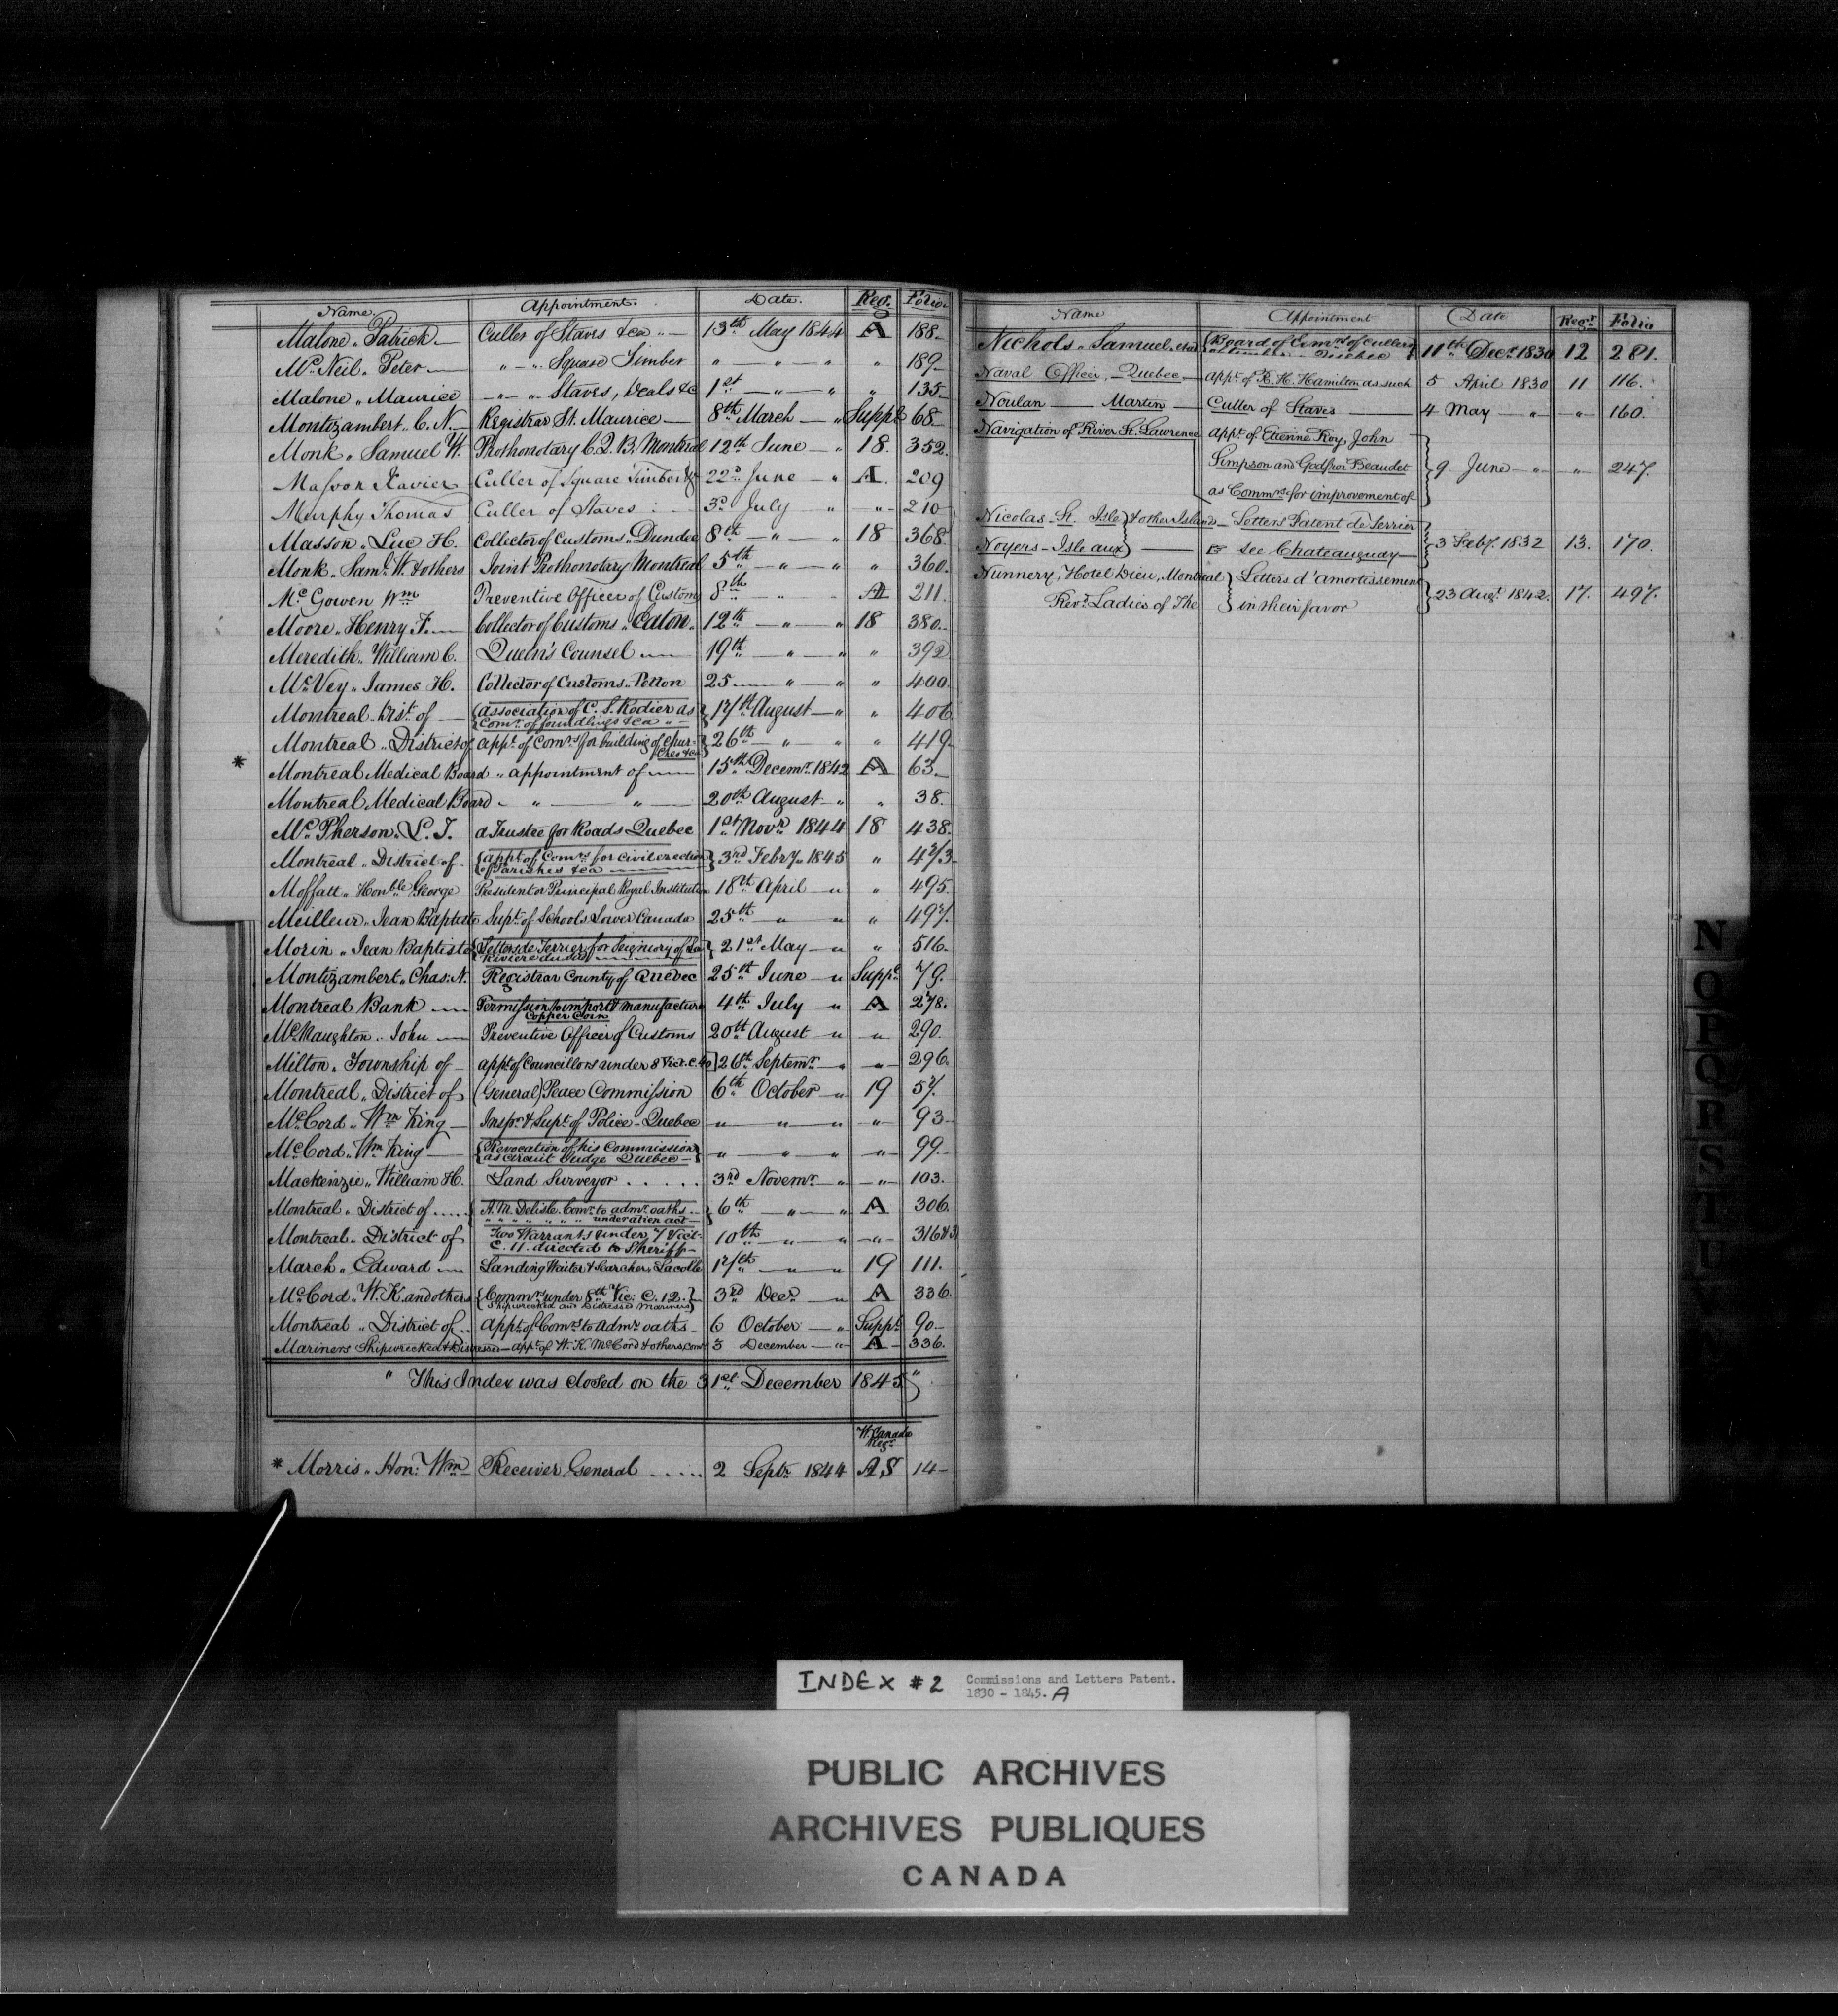 Name. Appointment. Date. Reg. Folio.
Malone „ Patrick — Culler of Staves &ca „ — 13th May 1844 A 188
McNeil „ Peter — „ — „ Square Timber „ — „ — „ „ 189
Malone „ Maurice — „ — „ Staves, Deals &c 1st — „ — „ „ 135
Montizambert „ C. N. — Registrar St. Maurice — 8th March — „ Suppt 68
Monk „ Samuel W. Prothonotary C.Q.B. Montreal 12th June — „ 18. 352
Masson Xavier Culler of Square Timber & 22d June — „ A. 209
Murphy Thomas Culler of Staves 3d July „ „ 210
Masson „ Luc H. Collector of Customs „ Dundee 8th — „ — 18 368.
Monk „ Saml. W. & others Joint Prothonotary Montreal 5th — „ — „ „ 360.
McGowen Wm Preventive Officer of Customs 8th „ A 211.
Moore „ Henry F. — Collector of Customs „ Eaton „ 12th — „ — „ 18 380.
Meredith „ William C. Queen's Counsel — 19th — „ — „ „ 392
McVey „ James H. Collector of Customs „ Potton 25 — „ — „ „ 400.
Montreal „ Dist. of — {association of C. S. Rodier as } 17th August — „ „ 406
{Comr. of foundlings &ca „ —
Montreal „ District of appt. of Comrs for building of Chur- } 26th — „ — „ „ 419
ches &ca
* Montreal Medical Board „ appointment of — 15th Decemr. 1842 A 63
Montreal Medical Board — „ — „ — 20th August — „ „ 38.
McPherson „ L. T. a Trustee for Roads Quebec 1st Novr 1844 18 438.
Montreal „ District of — {appt. of Comrs for civil erection } 3rd Febry. 1845 „ 473
{of Parishes &ca —
Moffatt „ Honble George President or Principal Royal Institution 18th April — „ „ 495.
Meilleur „ Jean Baptiste Supt. of Schools Lower Canada 25th — „ — „ „ 497.
Morin „ Jean Baptiste {Letters de Terrier for Seigniory of La } 21st May — „ „ 516.
Riviere du Sud
Montizambert „ Chas. N. Registrar County of Quebec 25th June — „ Suppt. 79.
Montreal Bank — Permission to import & manufacture 4th July — „ A 278.
Copper Coin
McNaughton „ John — Preventive Officer of Customs 20th August — „ „ 290.
Milton „ Township of — appt. of Councillors under 8 Vict. C. 40 26th Septemr — „ „ 296.
Montreal „ District of (General) Peace Commission 6th October — „ 19 57.
McCord „ Wm King — Inspr. & Supt. of Police — Quebec — „ — „ — „ „ 93
McCord „ Wm King — {Revocation of his Commission } „ „ „ „ 99.
{as Circuit Judge Quebec —
Mackenzie „ William H. Land Surveyor . . . . . 3rd Novemr — „ — „ — 103.
Montreal „ District of ..... { A. M. Delisle Comr. to admr. oaths } 6th — „ — „ A 306.
„ „ „ „ „ „ under alien act —
Montreal „ District of Two Warrants under 7 Vict. 10th „ „ „ 316
C. 11. directed to Sheriff —
March „ Edward — Landing Waiter & Searcher, Lacolle 17th — „ — „ 19 111.
McCord „ W. K. and others {Commrs under 8th Vic: C. 12. } 3rd Decr. — „ A 336.
Shipwrecked and Distressed Mariners
Montreal „ District of .. Appt. of Comrs. to admr. oaths — 6 October — „ Suppt. 90 —
Mariners Shipwrecked & Distressed — appt. of W. K. McCord & others, Comrs 3 December — „ A 336.
" This Index was closed on the 31st December 1845 "
W. Canada
Regr
* Morris „ Hon: Wm Receiver General ..... 2 Septr. 1844 A S 14 —
Name Appointment Date Regr Folio
Nichols „ Samuel, et al {Board of Comrs of Cullers } 11th Decr. 1830 12 281.
of Timber — Quebec
Naval Officer, — Quebec — appt. of R. H. Hamilton as such 5 April 1830 11 116.
Noulan — Martin — Culler of Staves — 4 May — „ „ 160.
Navigation of River St. Lawrence appt. of Etienne Roy, John
Simpson and Godfroi Beaudet } 9 June — „ „ 247.
as Commrs for improvement of
Nicolas — St. Isle & other Islands — Letters Patent de Terrier
Noyers — Isle aux } — ☞ see Chateauguay — } 3 Feby. 1832 13. 170.
Nunnery, Hotel Dieu, Montreal } Letters d'amortissement
Revd. Ladies of The in their favor } 23 Augt. 1842. 17. 497.
N
O
P
Q
R
S
T
U
INDEX #2 Commissions and Letters Patent.
1830 - 1845. A
PUBLIC ARCHIVES
ARCHIVES PUBLIQUES
CANADA